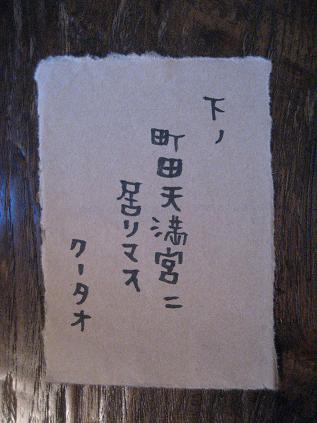 下ノ
町田天満宮ニ
居リマス
クータオ